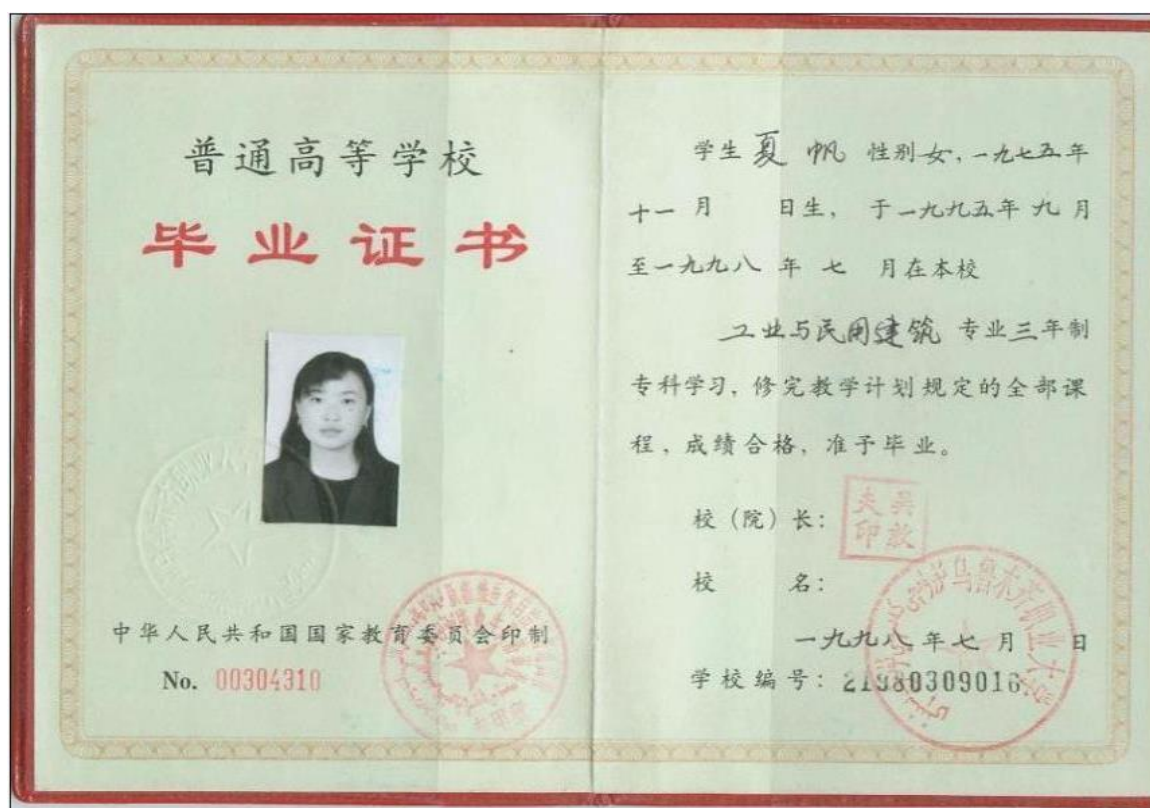 普通高等学校
毕业证书
中华人民共和国国家教育委员会印制
No. 00304310
学生 夏帆 性别 女, 一九七五年
十一月 日生, 于一九九五年九月
至一九九八年七月在本校
工业与民用建筑 专业三年制
专科学习, 修完教学计划规定的全部课
程, 成绩合格, 准予毕业。
校(院)长:
校 名:
乌鲁木齐职业大学
一九九八年七月 日
学校编号: